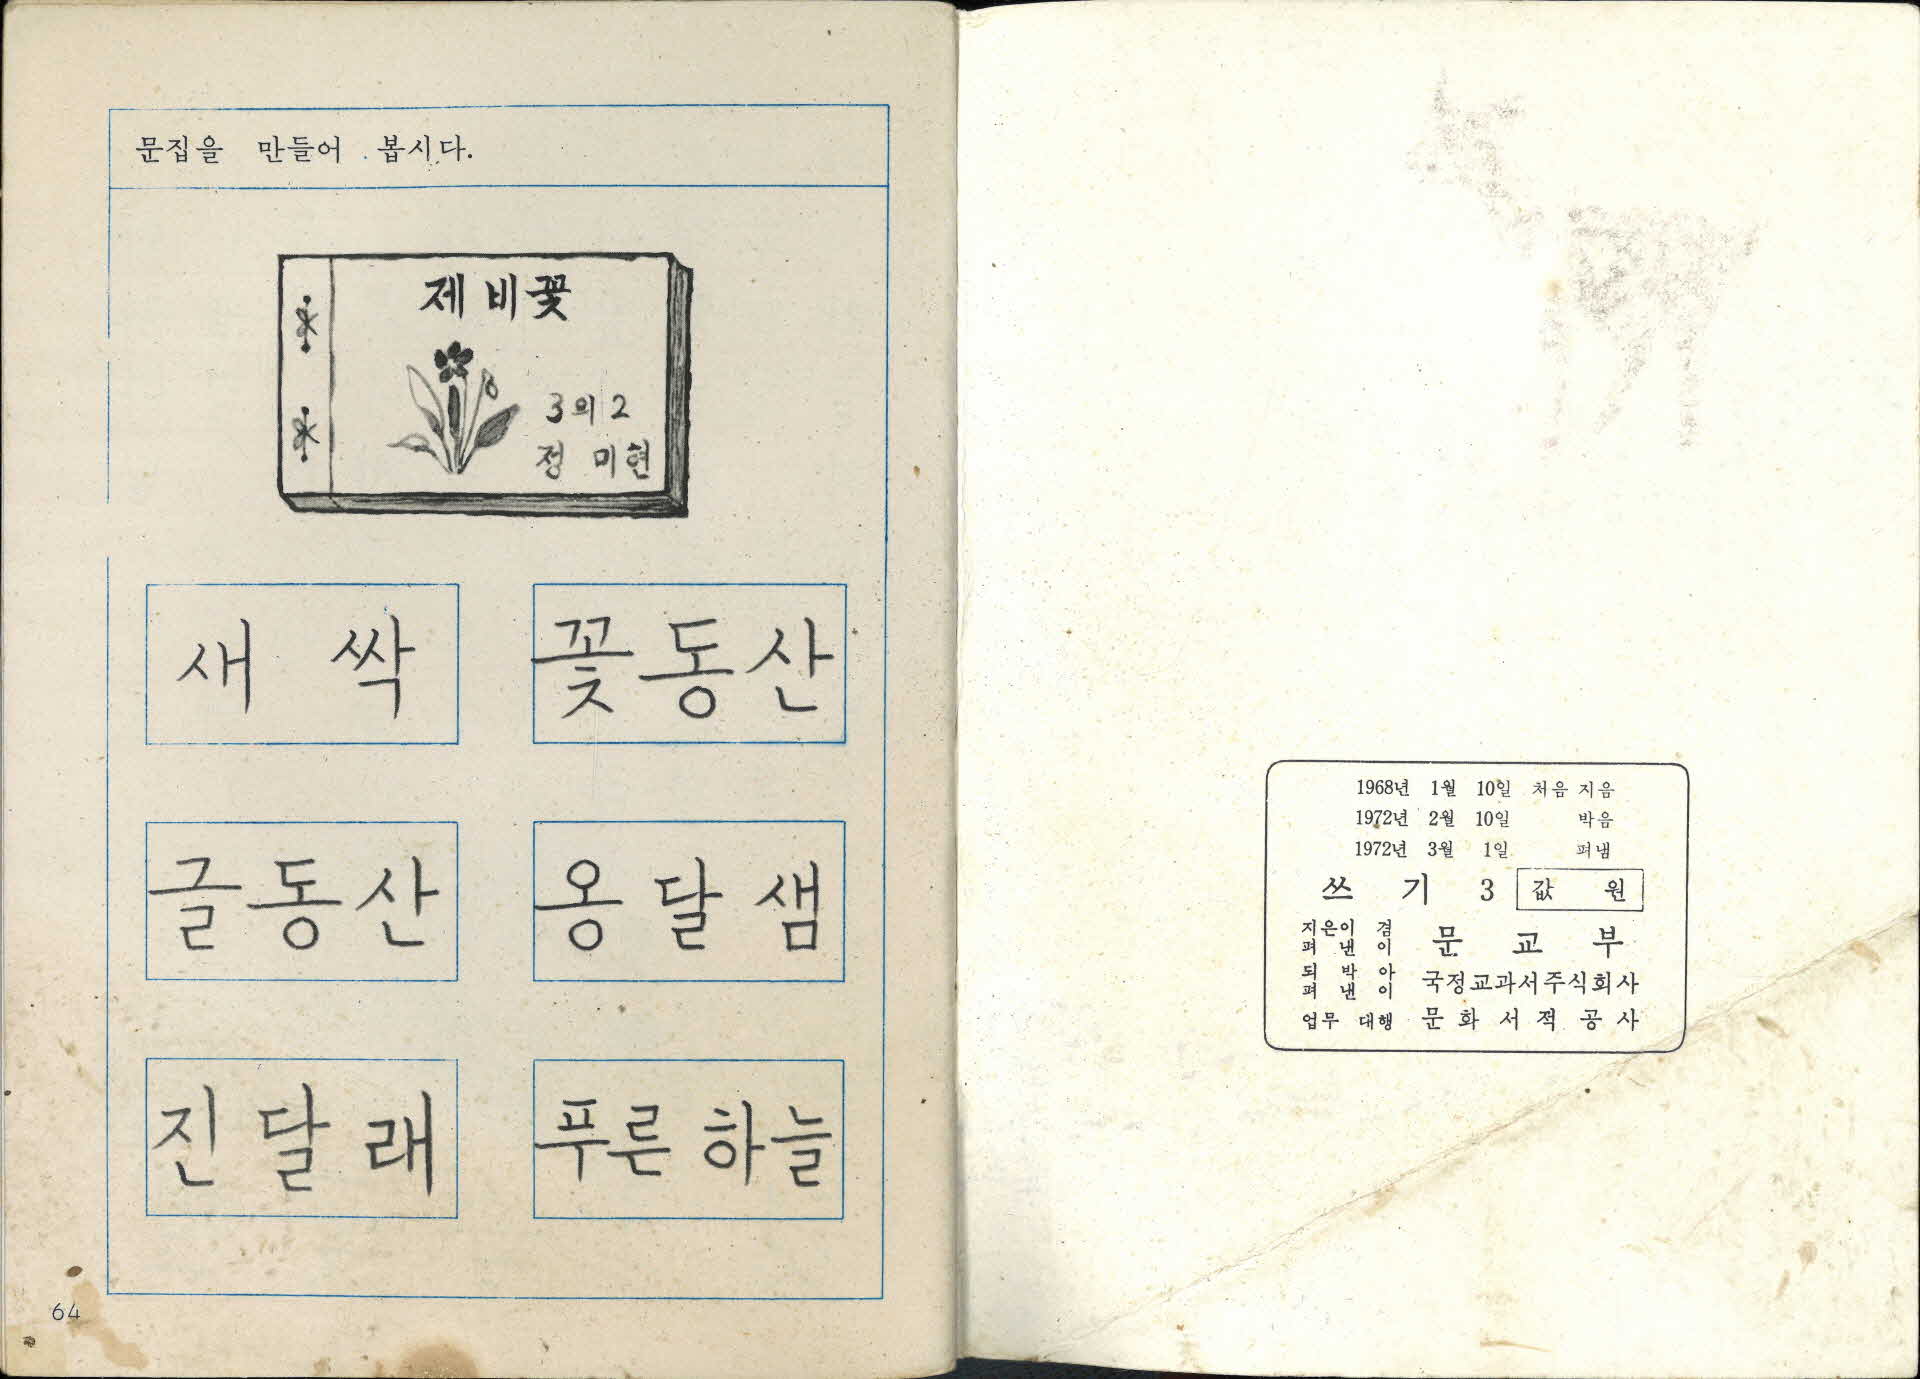 문집을 만들어 봅시다.
제비꽃
3의 2
정 미현
새 싹
꽃동산
글동산
옹달샘
진달래
푸른 하늘
64
1968년 1월 10일 처음 지음
1972년 2월 10일 박음
1972년 3월 1일 펴냄
쓰 기 3 값 원
지은이 겸
펴 낸 이
문 교 부
되 박 아
펴 낸 이
국정교과서주식회사
업무 대행 문 화 서 적 공 사